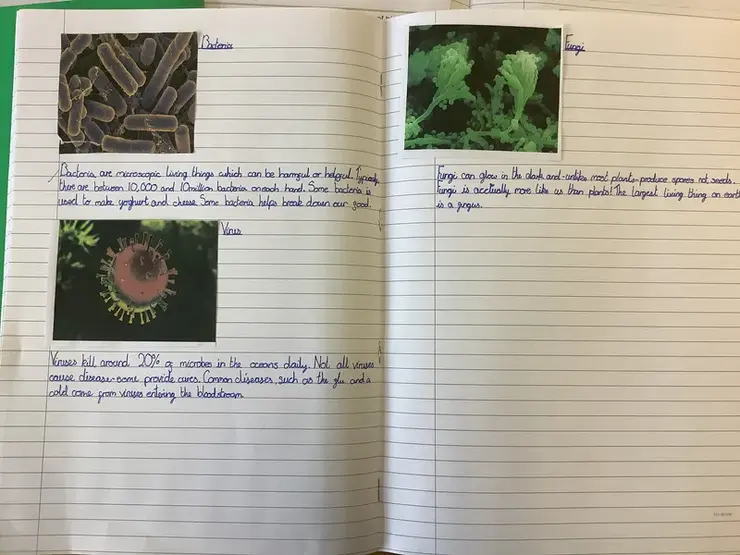 Bacteria
Bacteria are microscopic living things which can be harmful or helpful. Typically
there are between 10,000 and 10 million bacteria on each hand. Some bacteria is
used to make yoghurt and cheese. Some bacteria helps break down our food.
Virus
Viruses kill around 20% of microbes in the oceans daily. Not all viruses
cause disease-some provide cures. Common diseases, such as the flu and a
cold come from viruses entering the bloodstream.
Fungi
Fungi can glow in the dark and-unlike most plants-produce spores not seeds.
Fungi is acctually more like us than plants! The largest living thing on earth
is a fungus.